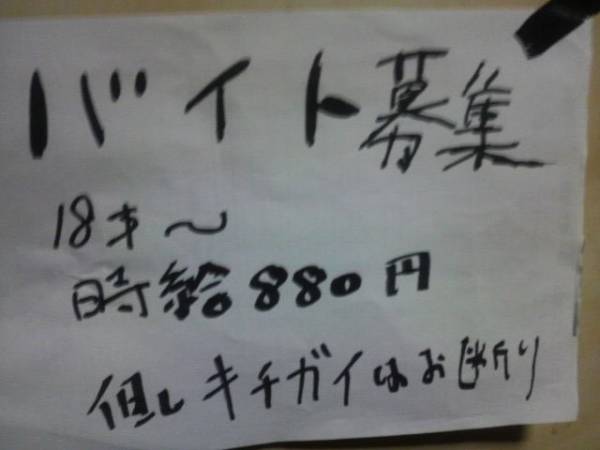 バイト募集
18才〜
時給880円
但しキチガイはお断り